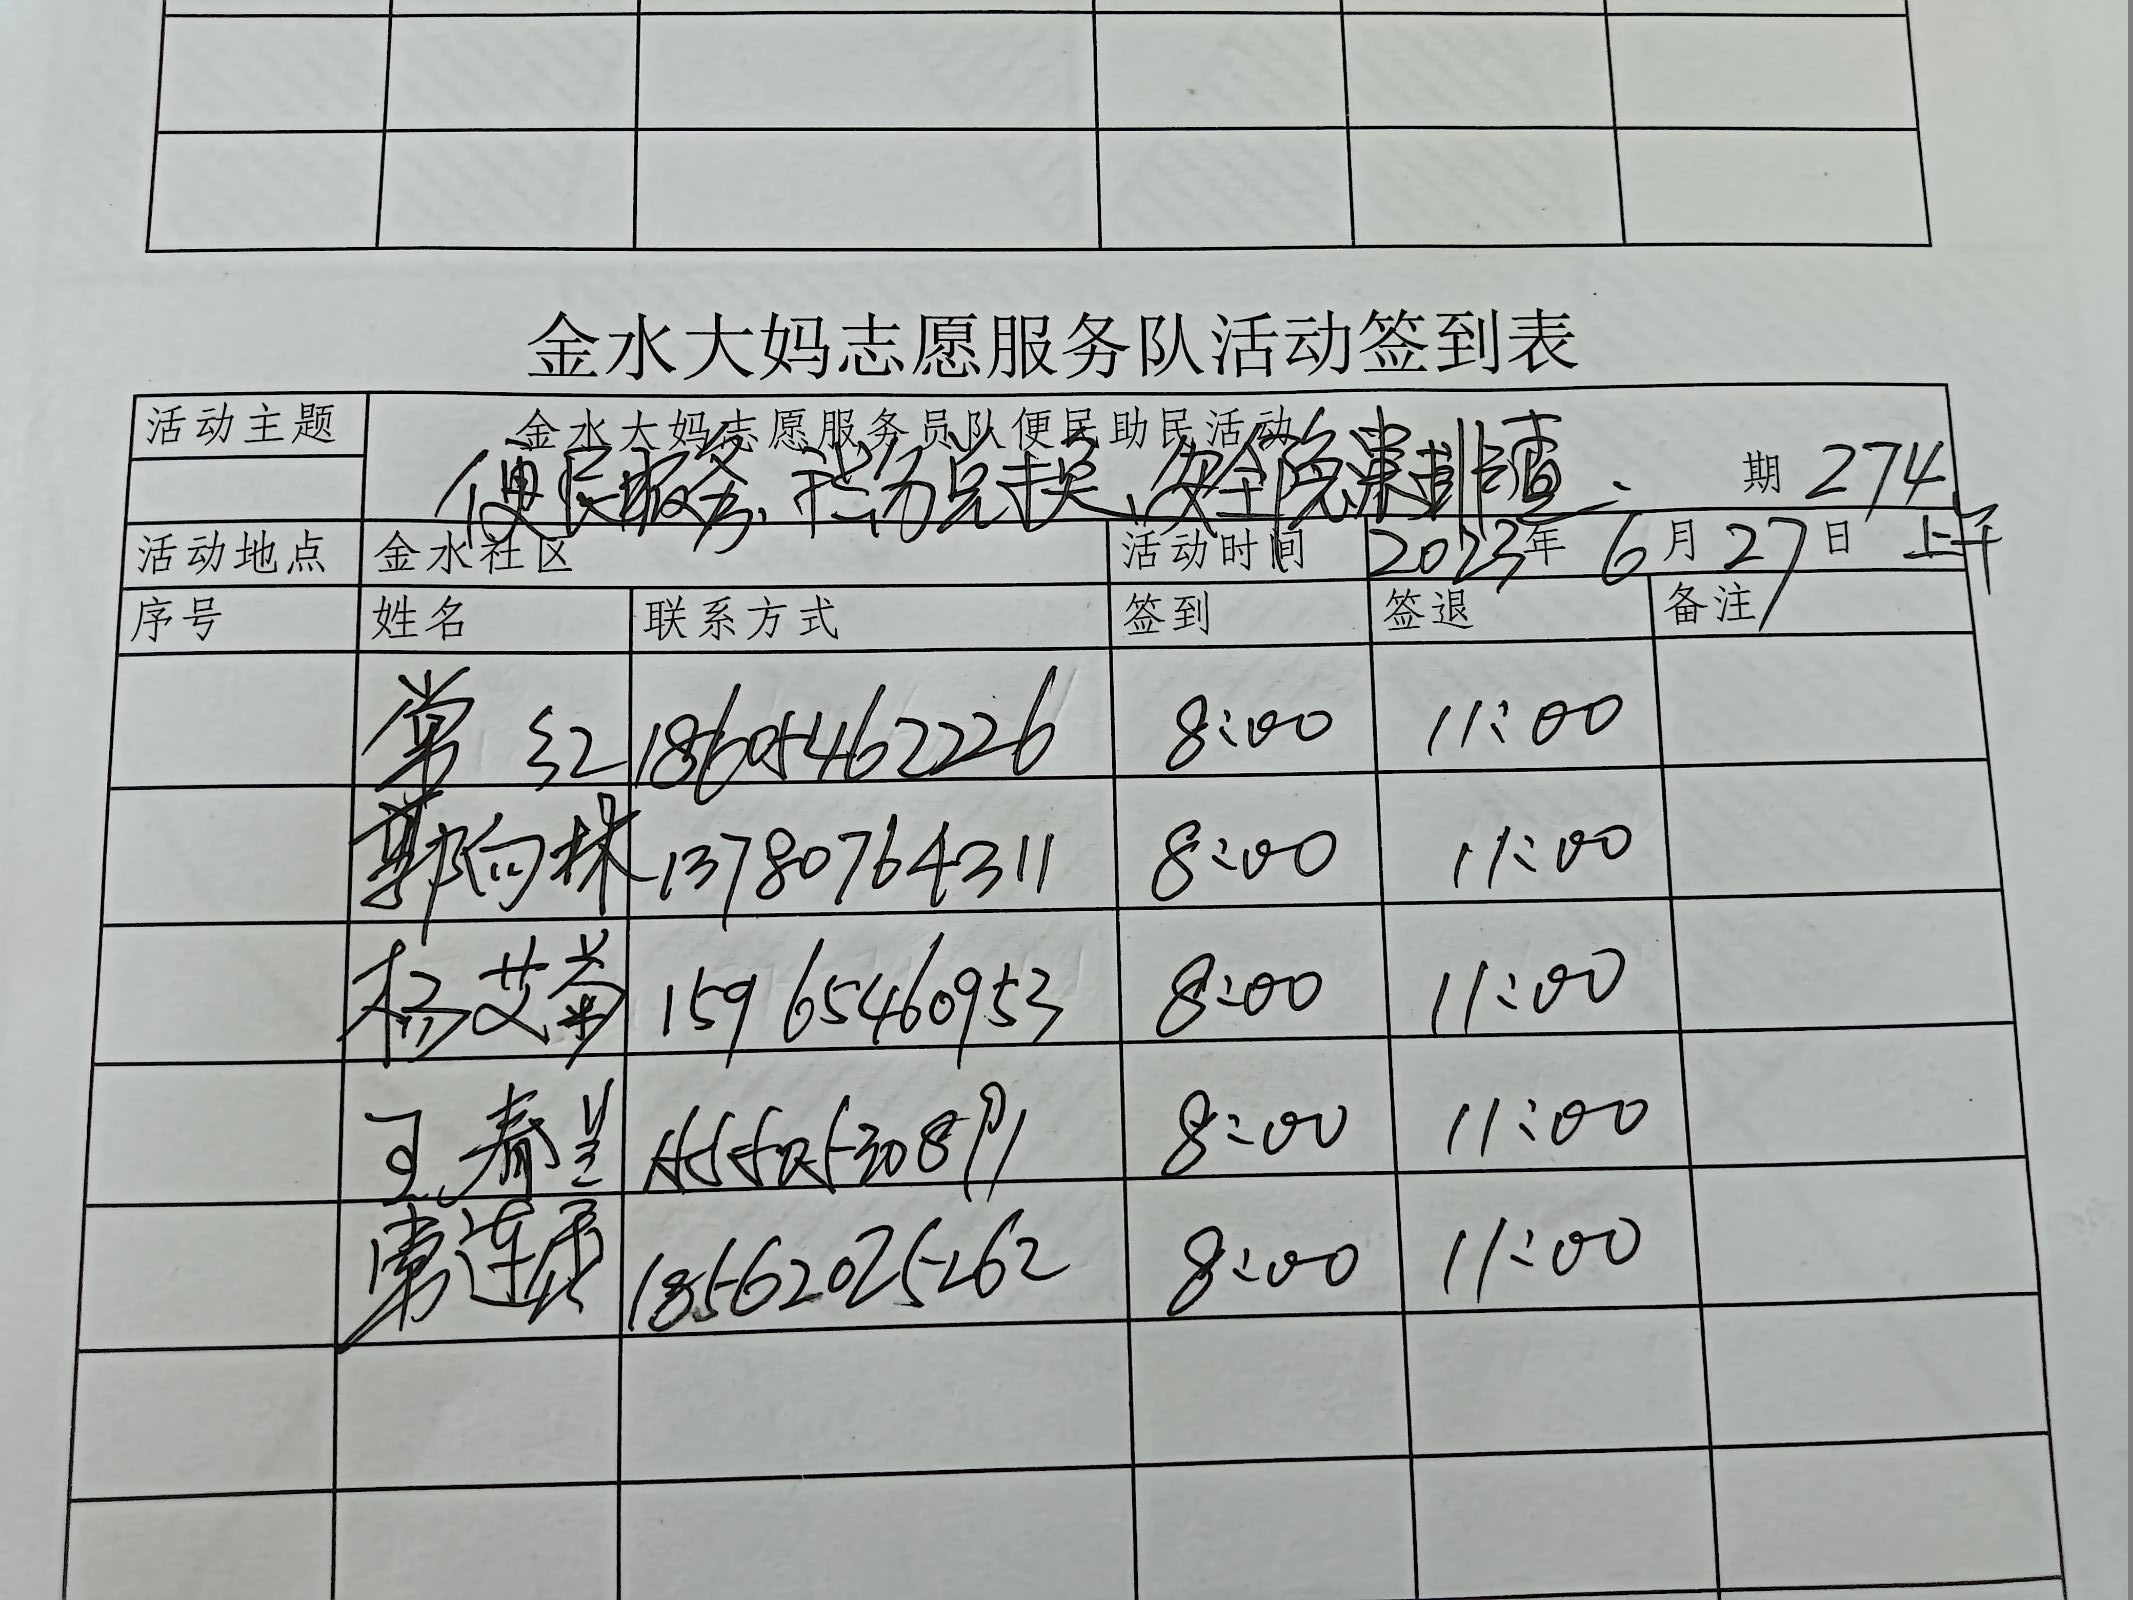 金水大妈志愿服务队活动签到表
活动主题 金水大妈志愿服务员队便民助民活动
便民服务、安全隐患排查、 期 274
活动地点 金水社区 活动时间 2023年 6月27日 上午
序号 姓名 联系方式 签到 签退 备注
常红 18605462226 8:00 11:00
郭向林 13780764311 8:00 11:00
杨艾菊 15965460953 8:00 11:00
王春兰 8:00 11:00
常连 18562025262 8:00 11:00